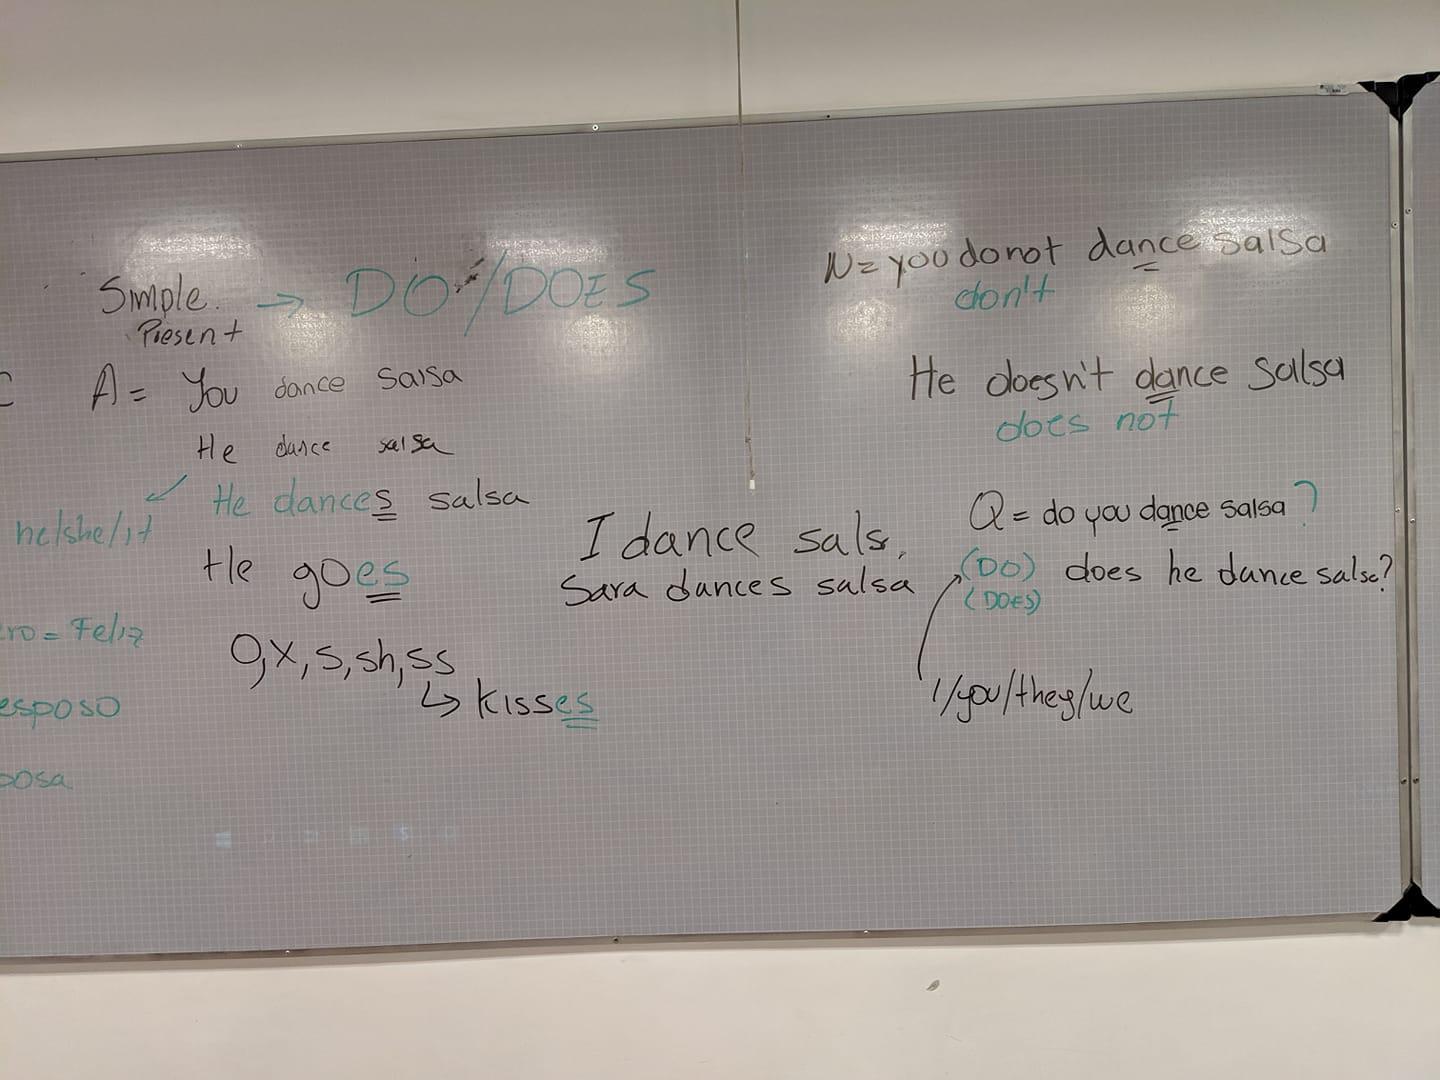 Simple → DO/DOES
Present
A = You dance salsa
He dance salsa
He dances salsa
he/she/it
He goes
ro = Feliz
O, X, S, sh, ss
↳ kisses
esposo
posa
I dance sals
Sara dances salsa
N = you do not dance salsa
don't
He doesn't dance salsa
does not
Q = do you dance salsa?
(DO) does he dance salsa?
(DOES)
I/you/they/we